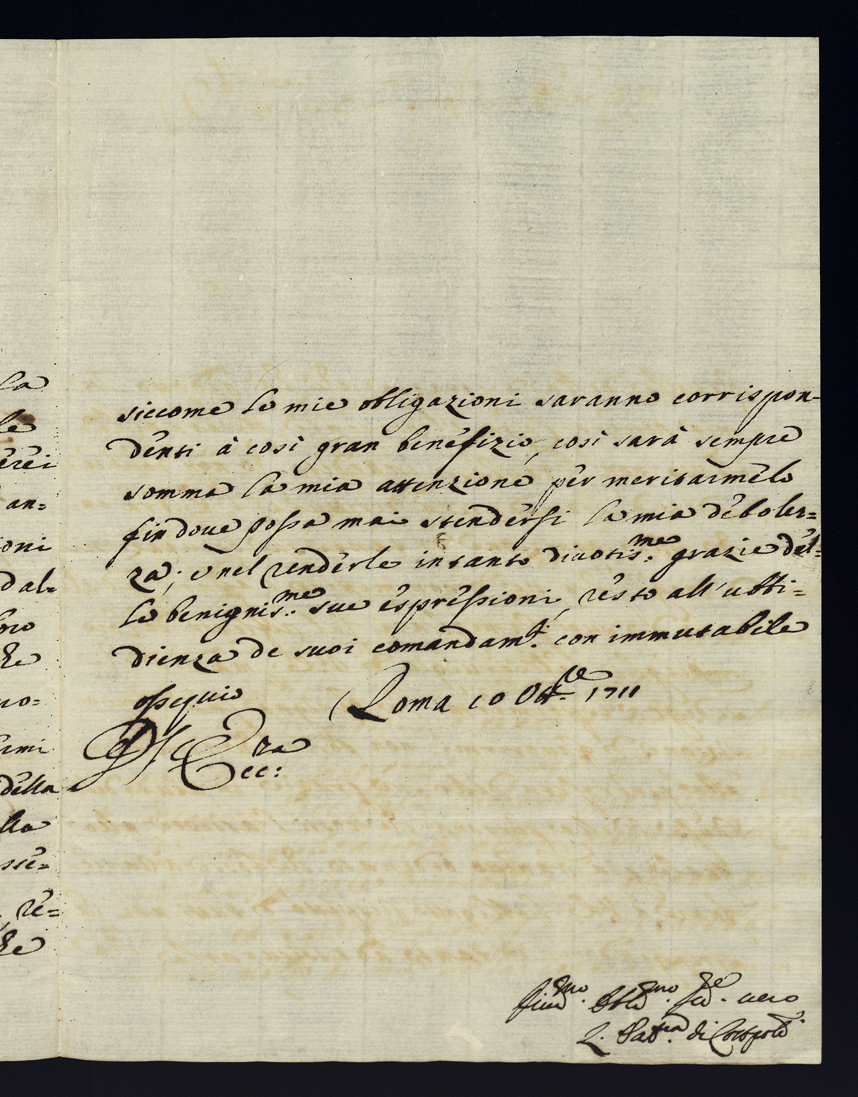 la
le
erei
an=
oni
dal=
loro
che
no=
ami
della
lla
sse=
, re=
che
siccome le mie obligazioni saranno corrispon-
denti à così gran benefizio, così sarà sempre
somma la mia attenzione per meritarmelo
fin dove possa mai stendersi la mia debolez=
za; e nel renderle intanto divotis.me grazie del=
le benignis.me sue espressioni, resto all'ubbi=
dienza de suoi comandam.ti con immutabile
ossequio
Roma 10 Ott.re 1711
Di V. Ecc:za
Div.mo Obl.mo se.re vero
L. Pat.rca di Costpoli